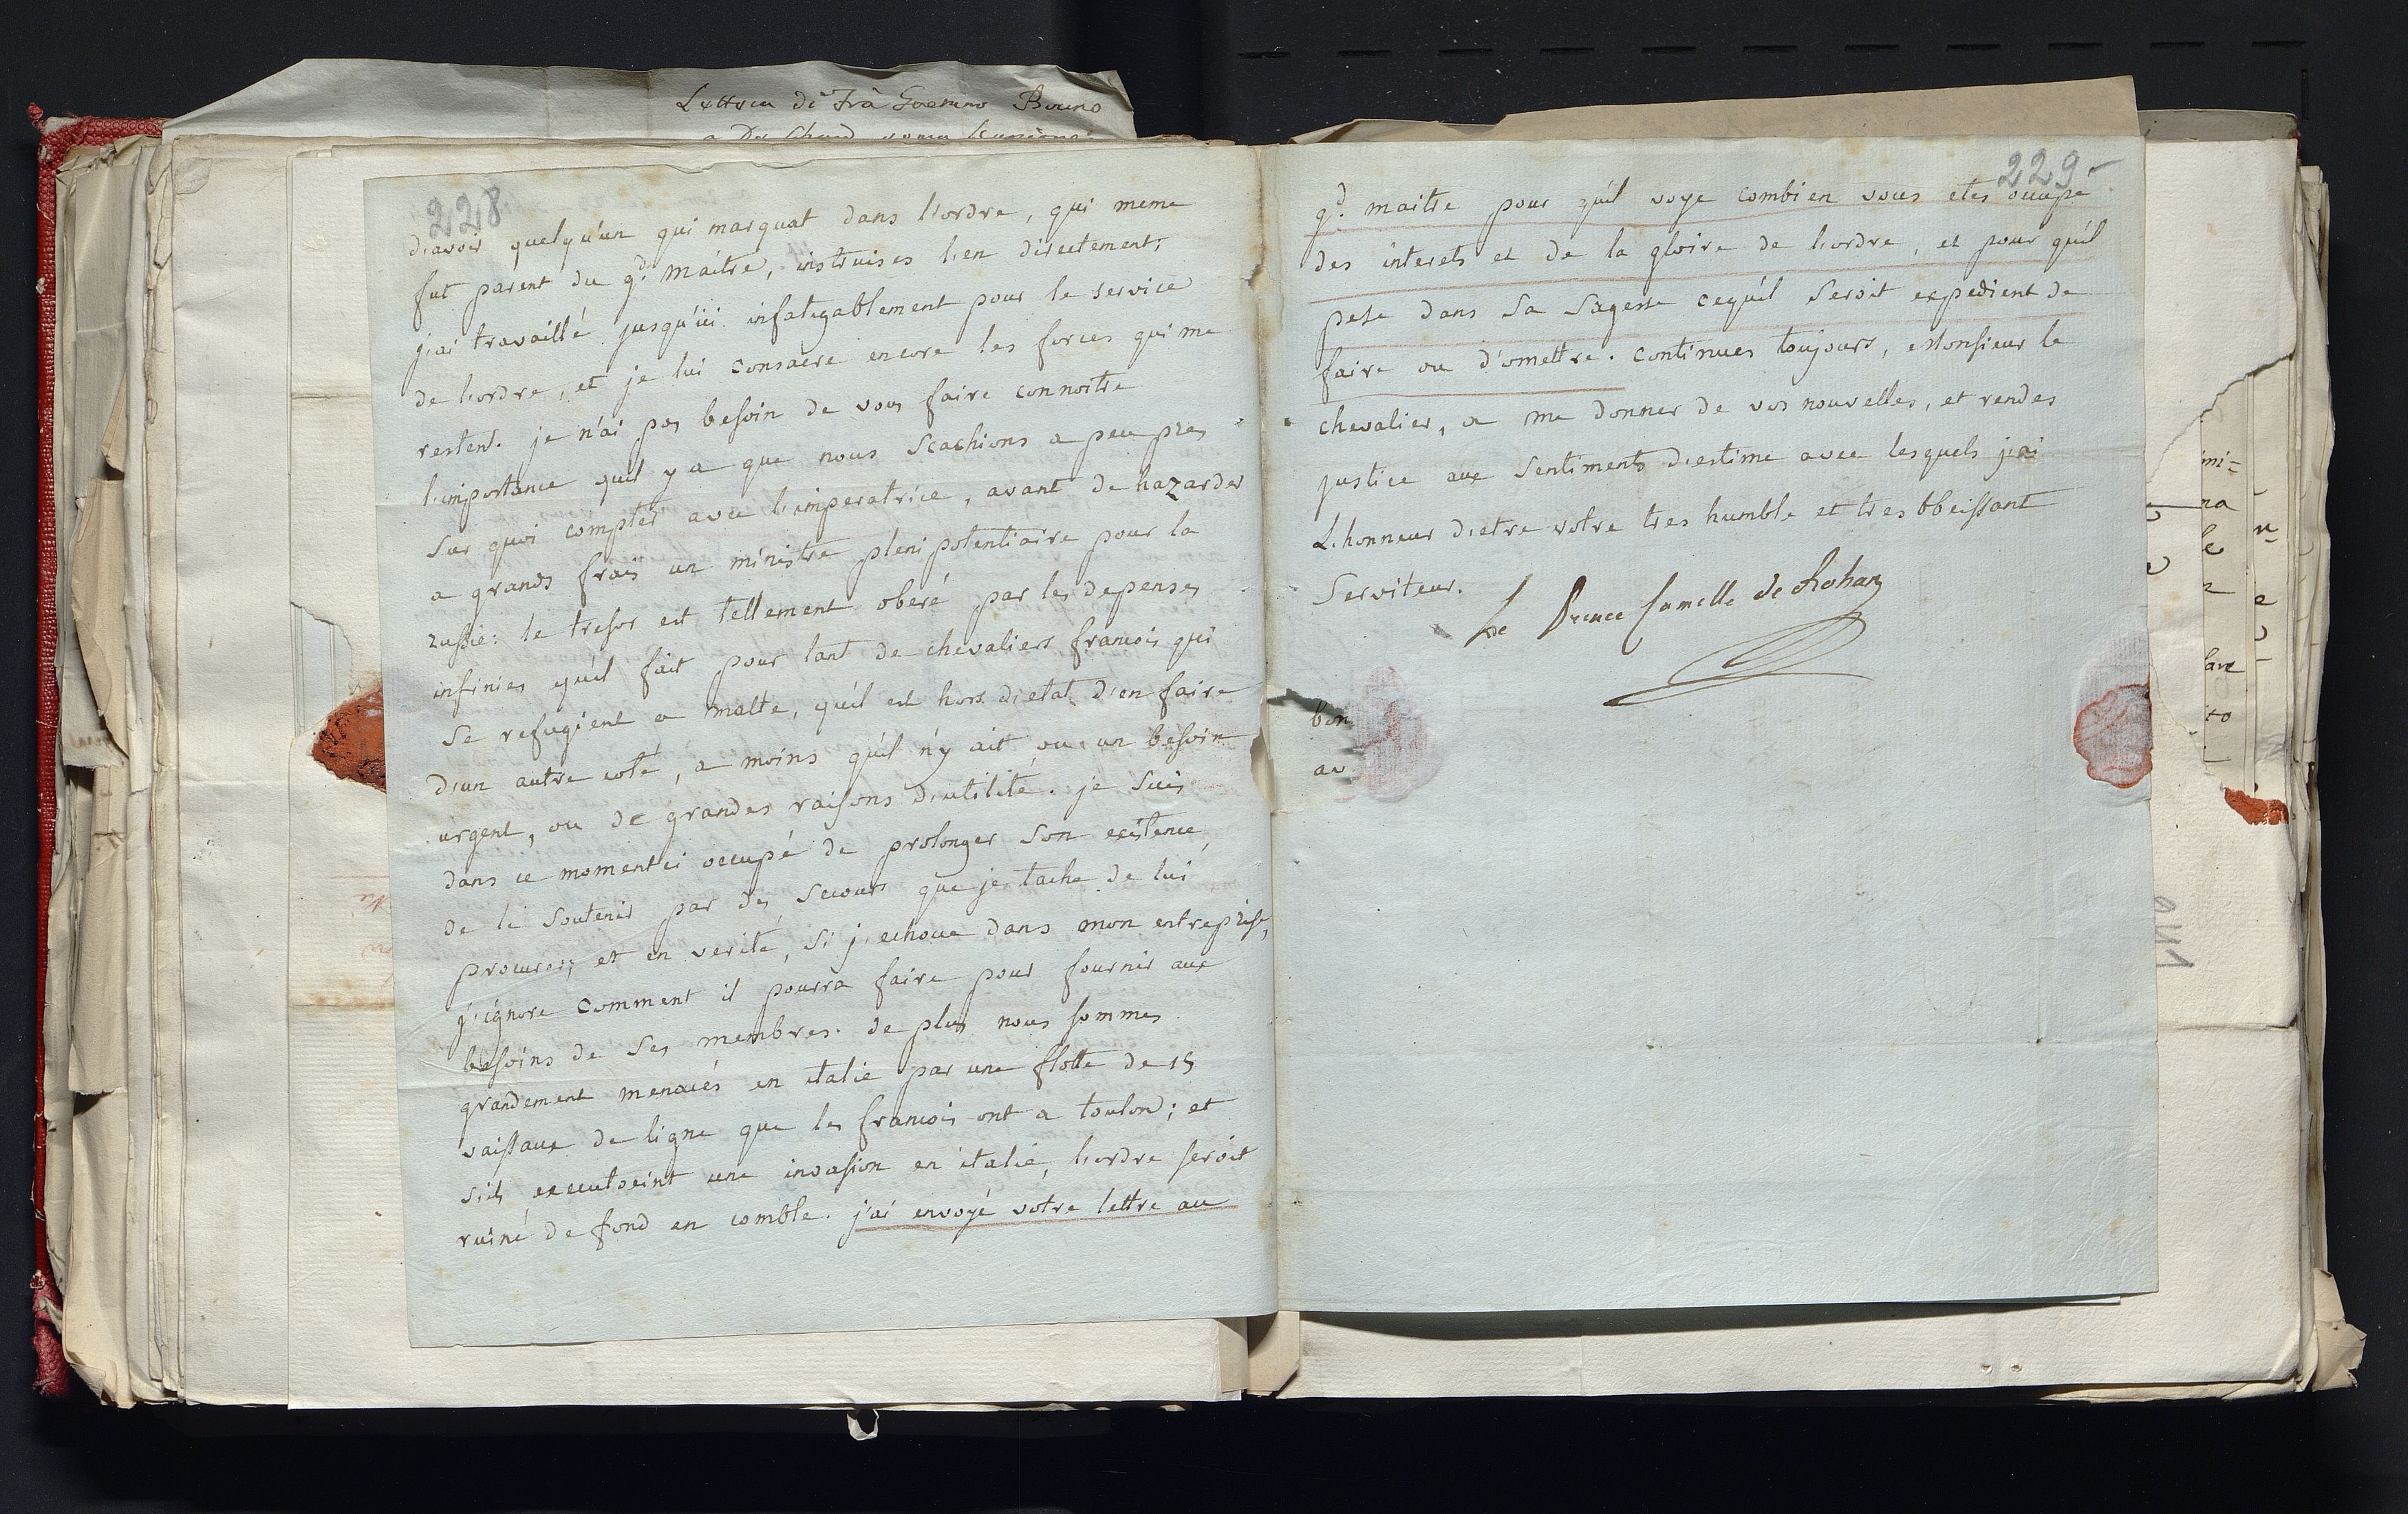 Lettera di Frà Gaetano Bruno
228
d'avoir quelqu'un qui marquat dans l'ordre, qui meme
fut parent du gd. maitre, instruises l'en directement;
j'ai travaillé jusqu'ici infatigablement pour le service
de l'ordre, et je lui consacre encore les forces qui me
restent. je n'ai pas besoin de vous faire connoitre
l'importance quil y a que nous scachions a peu pres
sur quoi compter avec l'imperatrice, avant de hazarder
a grands frais un ministre plenipotentiaire pour la
russie: le tresor est tellement obéré par les depenses
infinies qu'il fait pour tant de chevaliers francois qui
se refugient a malte, qu'il est hors d'etat d'en faire
d'un autre coté, a moins qu'il n'y ait, ou un besoin
urgent, ou de grandes raisons d'utilité. je suis
dans ce moment ci occupé de prolonger son existence,
de le soutenir par des secours que je tache de lui
procurer; et en verité, si j'echoue dans mon entreprise,
j'ignore comment il pourra faire pour fournir aux
besoins de ses membres. de plus nous sommes
grandement menacés en italie par une flotte de 15
vaissaux de ligne que les francois ont a toulon; et
s'ils executoient une invasion en italie, l'ordre seroit
ruiné de fond en comble. j'ai envoyé votre lettre au
229
gd. maitre pour qu'il voye combien vous etes occupe
des interets et de la gloire de l'ordre, et pour qu'il
pese dans sa sagesse cequ'il seroit expedient de
faire ou d'omettre. continues toujours, Monsieur le
chevalier, a me donner de vos nouvelles, et rendes
justice aux sentiments d'estime avec lesquels j'ai
L'honneur d'etre votre tres humble et tres obeissant
Serviteur. Le Prince Camille de Rohan
bon
av